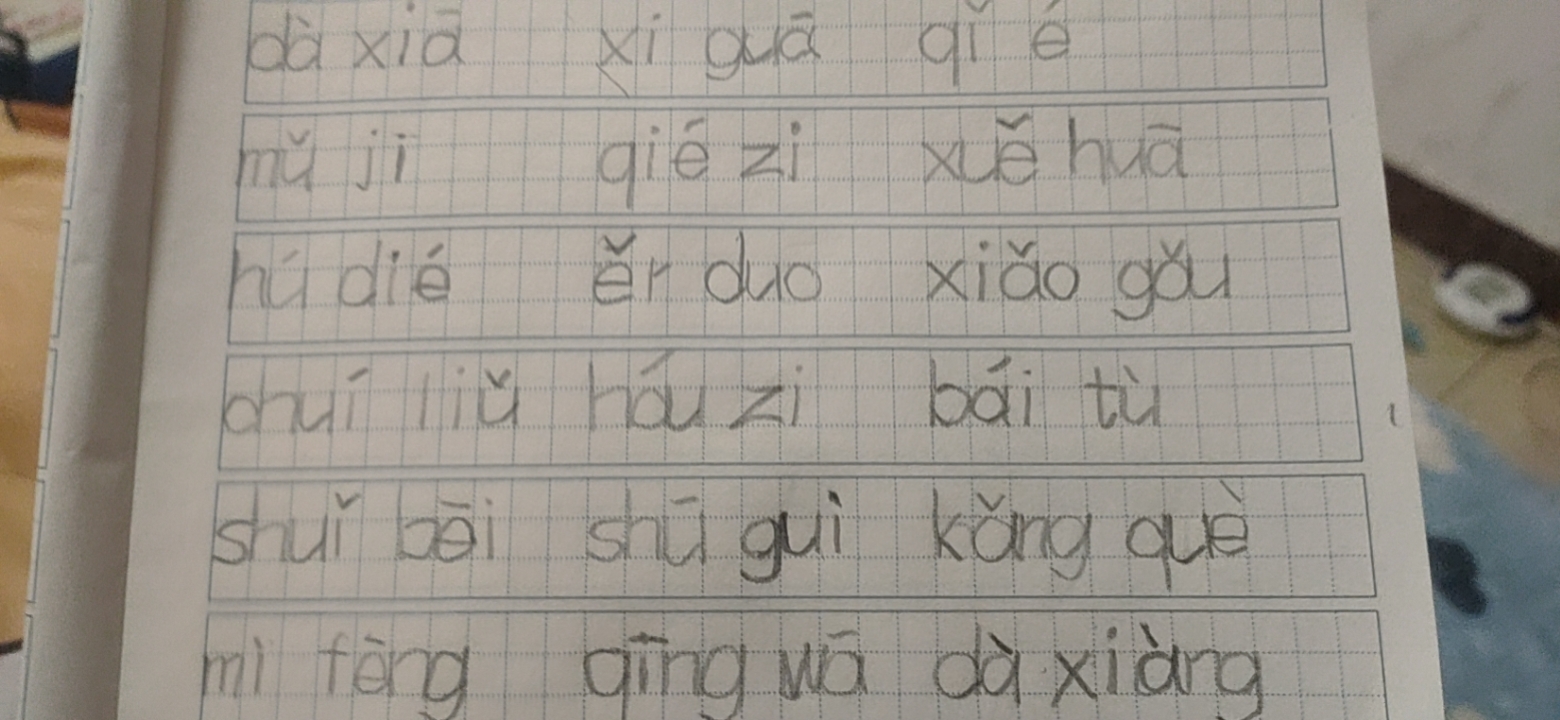 dà xiā xi guā qǐ é
mǔ jī qié zi xuě huā
hú dié ěr duo xiǎo gǒu
chuí liǔ hóu zi bái tù
shuǐ bēi shū guì kǒng què
mì fēng qīng wā dà xiàng